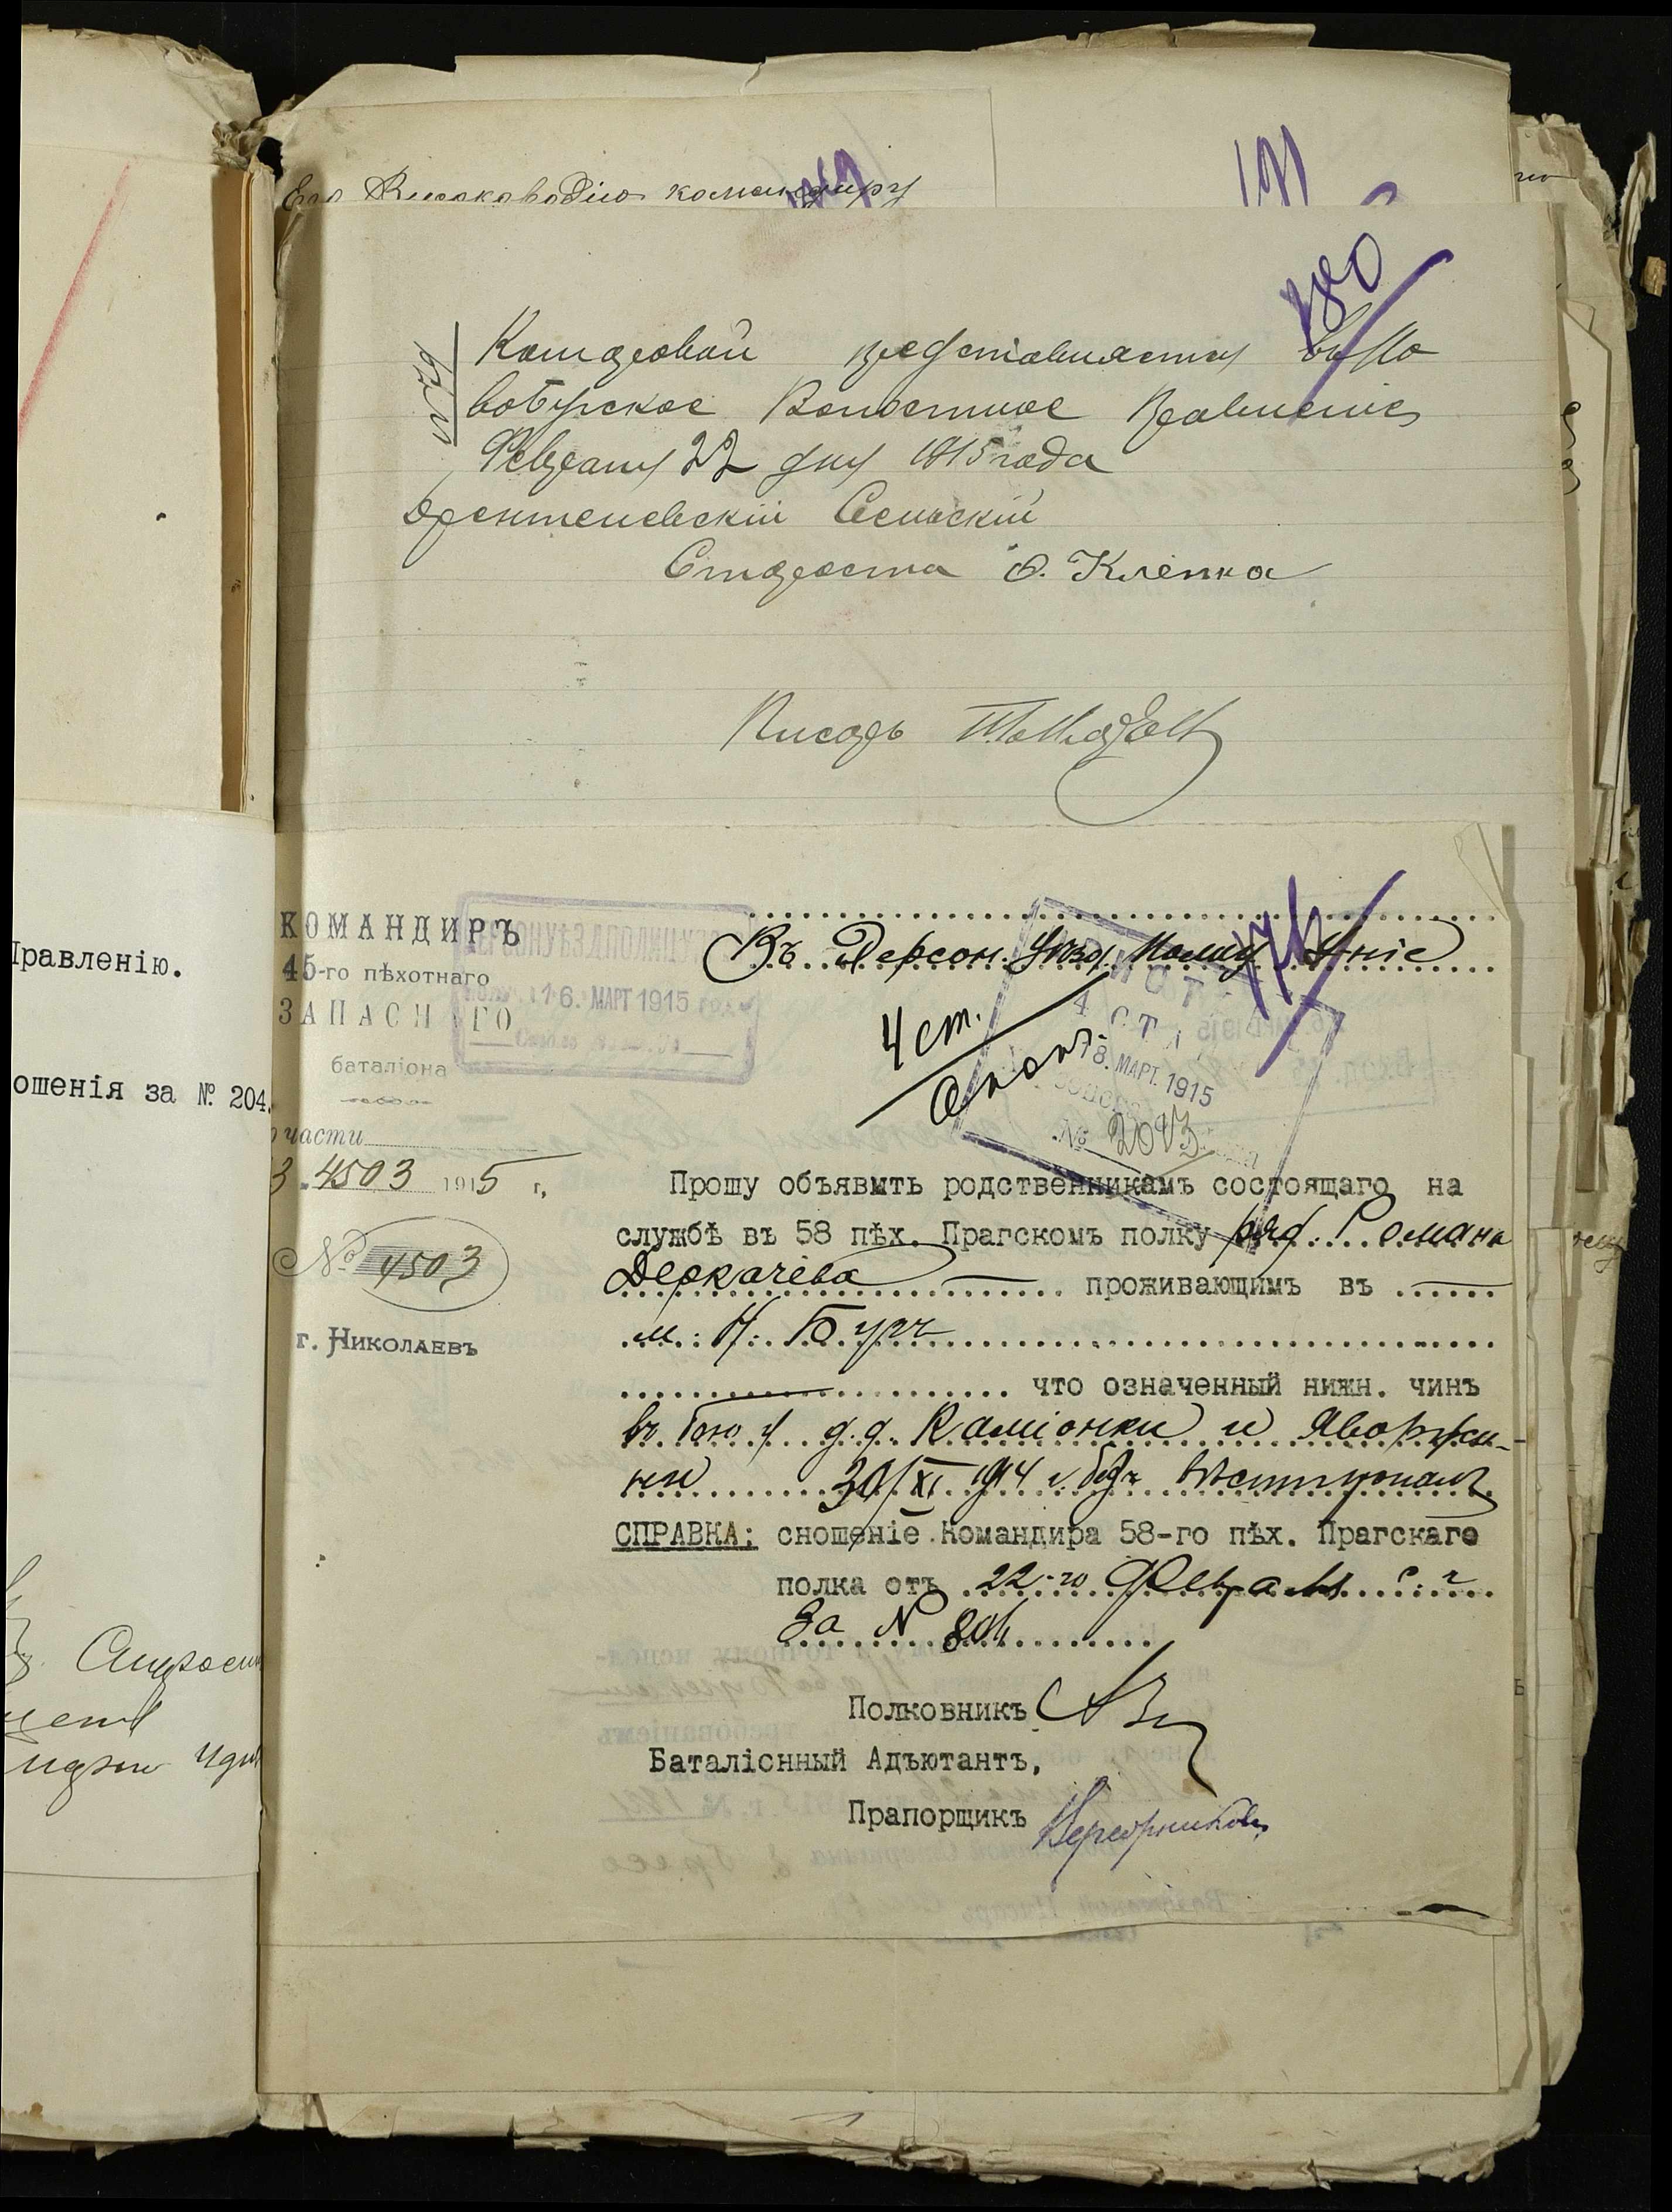 Его Высокоблодію командиру
191
180
Которовой представляетъ въ Но
вобугское Волостное Правленіе
Февраля 22 дня 1915 года
Сельскій
Староста Ѳ. Клепка
Писарь
Правленію.
ошенія за № 204.
КОМАНДИРЪ
45-го пѣхотнаго
ЗАПАСНОГО
баталіона
части
4503 1915 г.
№ 4503
г. Николаевъ
16. МАРТ 1915
Въ Херсон. Уѣзд. Полиц. Упр.
4 ст.
4 СТ
18. МАРТ. 1915
№ 2043
Прошу объявить родственникамъ состоящаго на
службѣ въ 58 пѣх. Прагскомъ полку ряд. Романа
Деркачёва проживающимъ въ
м. Н. Бугъ
что означенный нижн. чинъ
въ бою у д.д. Каміонки и Яворжи-
ни 30/XI 1914 г. безъ вѣсти пропалъ
СПРАВКА: сношеніе Командира 58-го пѣх. Прагскаго
полка отъ 22-го Февраля с. г.
За N 804
Полковникъ
Баталіонный Адъютантъ,
Прапорщикъ